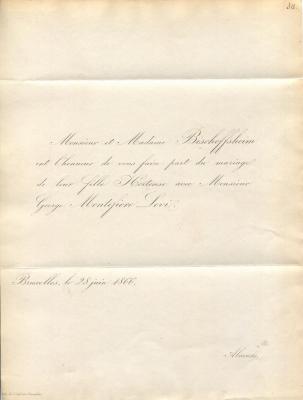 Monsieur et Madame Bischoffsheim
ont l'honneur de vous faire part du mariage
de leur fille Hortense avec Monsieur
George Montefiore Levi.
Bruxelles, le 28 juin 1866.